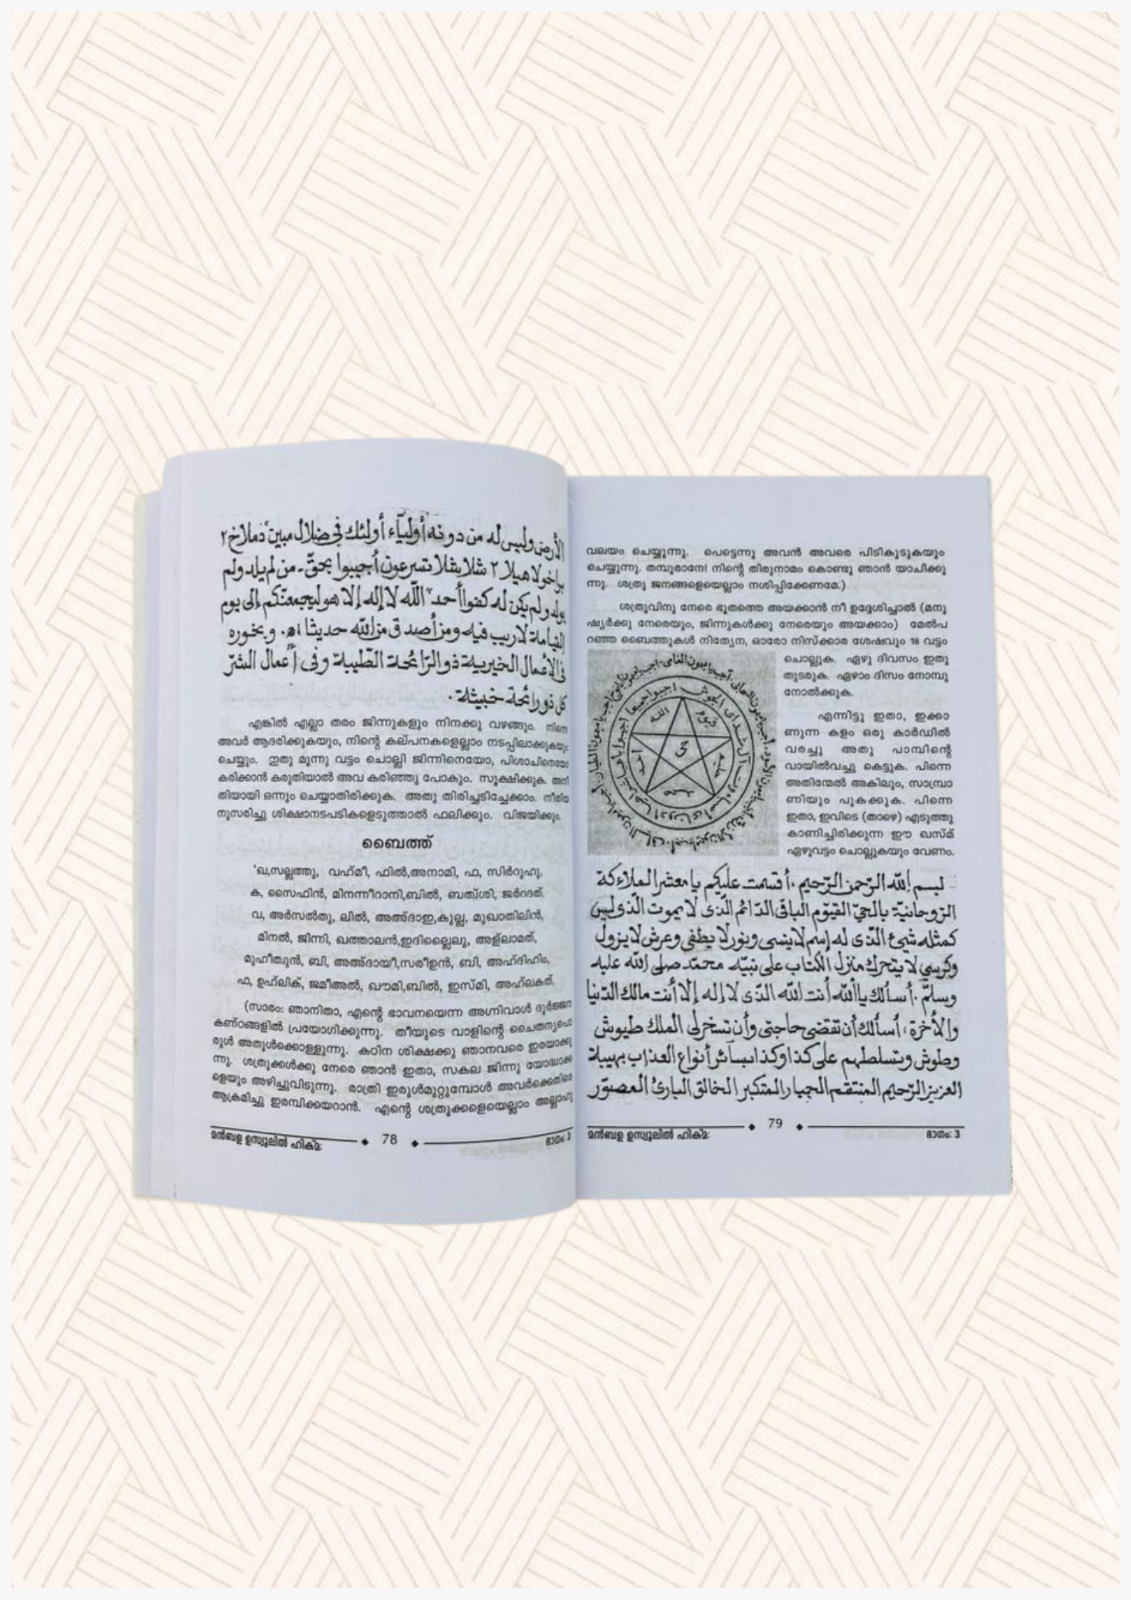 الأرض وليس له من دونه أولياء أولئك في ضلال مبين دملاخ ٢
براخولا هيلا ٢ شلا يشلا تسرعون أجيبوا بحق - من لم يلد ولم
يولد ولم يكن له كفوا أحد الله لا إله إلا هو ليجمعنكم إلى يوم
القيامة لا ريب فيه ومن أصدق من الله حديثا اه. وبخوره
في الأعمال الخيرية ذو الرائحة الطيبة وفي أعمال الشر
كل ذو رائحة خبيثة .
എങ്കിൽ എല്ലാ തരം ജിന്നുകളും നിനക്കു വഴങ്ങും. നിന്നെ
അവർ ആദരിക്കുകയും, നിന്റെ കല്പനകളെല്ലാം നടപ്പിലാക്കുകയും
ചെയ്യും. ഇതു മൂന്നു വട്ടം ചൊല്ലി ജിന്നിനെയോ, പിശാചിനെയോ
കരിക്കാൻ കരുതിയാൽ അവ കരിഞ്ഞു പോകും. സൂക്ഷിക്കുക. അനീ
തിയായി ഒന്നും ചെയ്യാതിരിക്കുക. അതു തിരിച്ചടിച്ചേക്കാം. നീതിയ
നുസരിച്ചു ശിക്ഷാനടപടികളെടുത്താൽ ഫലിക്കും. വിജയിക്കും.
ബൈത്ത്
'ഖ,സല്ലത്തു, വഹ്മീ, ഫിൽ,അനാമി, ഫ, സിർറുഹു,
ക, സൈഫിൻ, മിനന്നീറാനി,ബിൽ, ബത്ശി, ജർറദത്.
വ, അർസൽതു, ലിൽ, അഅ്ദാഇ,കുല്ല, മുഖാതിലിൻ,
മിനൽ, ജിന്നി, ഖത്താലൻ,ഇദില്ലൈലു, അള്ലാമത്,
മുഹീതുൻ, ബി, അഅ്ദായീ,സരീഉൻ, ബി, അഹ്ദിഹിം,
ഫ, ഉഹ്‌ലിക്, ജമീഅൽ, ഖൗമി,ബിൽ, ഇസ്മി, അഹ്‌ലകത്.
(സാരം: ഞാനിതാ, എന്റെ ഭാവനയെന്ന അഗ്നിവാൾ ദുർജ്ജന
കണ്ഠങ്ങളിൽ പ്രയോഗിക്കുന്നു. തീയുടെ വാളിന്റെ ചൈതന്യപൊ
രുൾ അതുൾക്കൊള്ളുന്നു. കഠിന ശിക്ഷക്കു ഞാനവരെ ഇരയാക്കു
ന്നു. ശത്രുക്കൾക്കു നേരെ ഞാൻ ഇതാ, സകല ജിന്നു യോദ്ധാക്ക
ളെയും അഴിച്ചുവിടുന്നു. രാത്രി ഇരുൾമുറ്റുമ്പോൾ അവർക്കെതിരെ
ആക്രമിച്ചു ഇരമ്പിക്കയറാൻ. എന്റെ ശത്രുക്കളെയെല്ലാം അല്ലാഹു
മൻബഉ ഉസ്വൂലിൽ ഹിക്മ: 78 ഭാഗം: 3
വലയം ചെയ്യുന്നു. പെട്ടെന്നു അവൻ അവരെ പിടികൂടുകയും
ചെയ്യുന്നു. തമ്പുരാനേ! നിന്റെ തിരുനാമം കൊണ്ടു ഞാൻ യാചിക്കു
ന്നു. ശത്രു ജനങ്ങളെയെല്ലാം നശിപ്പിക്കേണമേ.)
ശത്രുവിനു നേരെ ഭൂതത്തെ അയക്കാൻ നീ ഉദ്ദേശിച്ചാൽ (മനു
ഷ്യർക്കു നേരെയും, ജിന്നുകൾക്കു നേരെയും അയക്കാം) മേൽപ
റഞ്ഞ ബൈത്തുകൾ നിത്യേന, ഓരോ നിസ്ക്കാര ശേഷവും 18 വട്ടം
ചൊല്ലുക. ഏഴു ദിവസം ഇതു
തുടരുക. ഏഴാം ദിസം നോമ്പു
നോൽക്കുക.
എന്നിട്ടു ഇതാ, ഇക്കാ
ണുന്ന കളം ഒരു കാർഡിൽ
വരച്ചു അതു പാമ്പിന്റെ
വായിൽവച്ചു കെട്ടുക. പിന്നെ
അതിന്മേൽ അകിലും, സാമ്പ്രാ
ണിയും പുകക്കുക. പിന്നെ
ഇതാ, ഇവിടെ (താഴെ) എടുത്തു
കാണിച്ചിരിക്കുന്ന ഈ ഖസ്മ്
ഏഴുവട്ടം ചൊല്ലുകയും വേണം.
الله
قيوم
حي
أحد
صمد
بسم الله الرحمن الرحيم . أقسمت عليكم يا معشر الملائكة
الروحانية بالحي القيوم الباقي الدائم الذي لا يموت الذي ليس
كمثله شيئ الذي له إسم لا ينسى ونور لا يطفى وعرش لا يزول
وكرسي لا يتحرك منزل الكتاب على نبيه محمد صلى الله عليه
وسلم . أسألك يا الله أنت الله الذي لا إله إلا أنت مالك الدنيا
والآخرة . أسألك أن تقضي حاجتي وأن تسخر لي الملك طيوش
وطوش وتسلطهم على كذا وكذا بسائر أنواع العذاب بهيبة
العزيز الرحيم المنتقم الجبار المتكبر الخالق البارئ المصور
മൻബഉ ഉസ്വൂലിൽ ഹിക്മ: 79 ഭാഗം: 3